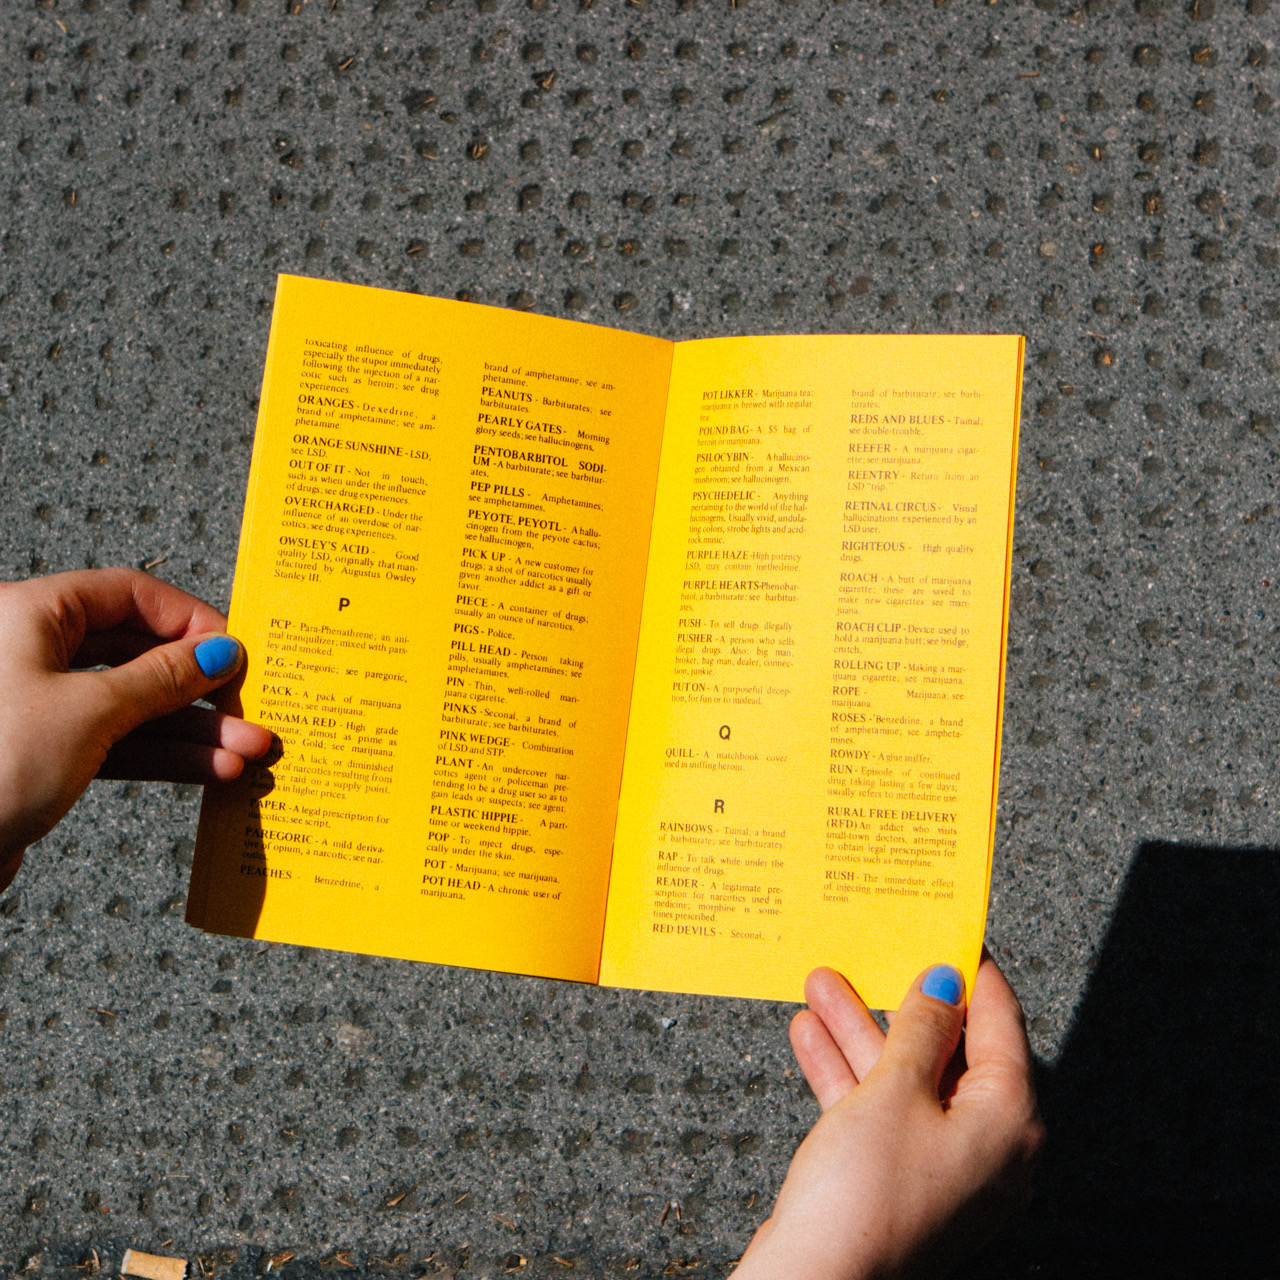 toxicating influence of drugs,
especially the stupor immediately
following the injection of a nar-
cotic such as heroin; see drug
experiences.
ORANGES - Dexedrine, a
brand of amphetamine; see am-
phetamine.
ORANGE SUNSHINE - LSD;
see LSD.
OUT OF IT - Not in touch,
such as when under the influence
of drugs; see drug experiences.
OVERCHARGED - Under the
influence of an overdose of nar-
cotics; see drug experiences.
OWSLEY'S ACID - Good
quality LSD, originally that man-
ufactured by Augustus Owsley
Stanley III.
P
PCP - Para-Phenathrene; an ani-
mal tranquilizer; mixed with pars-
ley and smoked.
P.G. - Paregoric; see paregoric,
narcotics.
PACK - A pack of marijuana
cigarettes, see marijuana.
PANAMA RED - High grade
marijuana; almost as prime as
Gold; see marijuana.
A lack or diminished
of narcotics resulting from
police raid on a supply point.
in higher prices.
PAPER - A legal prescription for
narcotics; see script.
PAREGORIC - A mild deriva-
tive of opium, a narcotic; see nar-
cotics.
PEACHES - Benzedrine, a
brand of amphetamine; see am-
phetamine.
PEANUTS - Barbiturates; see
barbiturates.
PEARLY GATES - Morning
glory seeds; see hallucinogens.
PENTOBARBITOL SODI-
UM - A barbiturate; see barbitur-
ates.
PEP PILLS - Amphetamines;
see amphetamines.
PEYOTE, PEYOTL - A hallu-
cinogen from the peyote cactus;
see hallucinogen.
PICK UP - A new customer for
drugs; a shot of narcotics usually
given another addict as a gift or
favor.
PIECE - A container of drugs;
usually an ounce of narcotics.
PIGS - Police.
PILL HEAD - Person taking
pills, usually amphetamines; see
amphetamines.
PIN - Thin, well-rolled mari-
juana cigarette.
PINKS - Seconal, a brand of
barbiturate; see barbiturates.
PINK WEDGE - Combination
of LSD and STP.
PLANT - An undercover nar-
cotics agent or policeman pre-
tending to be a drug user so as to
gain leads or suspects; see agent.
PLASTIC HIPPIE - A part-
time or weekend hippie.
POP - To inject drugs, espe-
cially under the skin.
POT - Marijuana; see marijuana.
POT HEAD - A chronic user of
marijuana.
POT LIKKER - Marijuana tea;
marijuana is brewed with regular
tea.
POUND BAG - A $5 bag of
heroin or marijuana.
PSILOCYBIN - A hallucino-
gen obtained from a Mexican
mushroom; see hallucinogen.
PSYCHEDELIC - Anything
pertaining to the world of the hal-
lucinogens. Usually vivid, undula-
ting colors, strobe lights and acid-
rock music.
PURPLE HAZE - High potency
LSD, may contain methedrine.
PURPLE HEARTS - Phenobar-
bitol; a barbiturate; see barbitur-
ates.
PUSH - To sell drugs illegally.
PUSHER - A person who sells
illegal drugs. Also: big man,
broker, bag man, dealer, connec-
tion, junkie.
PUT ON - A purposeful decep-
tion, for fun or to mislead.
Q
QUILL - A matchbook cover
used in sniffing heroin.
R
RAINBOWS - Tuinal, a brand
of barbiturate; see barbiturates.
RAP - To talk while under the
influence of drugs.
READER - A legitimate pre-
scription for narcotics used in
medicine; morphine is some-
times prescribed.
RED DEVILS - Seconal, a
brand of barbiturate; see barbi-
turates.
REDS AND BLUES - Tuinal;
see double-trouble.
REEFER - A marijuana cigar-
ette; see marijuana.
REENTRY - Return from an
LSD "trip."
RETINAL CIRCUS - Visual
hallucinations experienced by an
LSD user.
RIGHTEOUS - High quality
drugs.
ROACH - A butt of marijuana
cigarette; these are saved to
make new cigarettes see mari-
juana.
ROACH CLIP - Device used to
hold a marijuana butt; see bridge,
crutch.
ROLLING UP - Making a mar-
ijuana cigarette; see marijuana.
ROPE - Marijuana; see
marijuana.
ROSES - Benzedrine, a brand
of amphetamine; see ampheta-
mines.
ROWDY - A glue sniffer.
RUN - Episode of continued
drug taking lasting a few days;
usually refers to methedrine use.
RURAL FREE DELIVERY
(RFD) An addict who visits
small-town doctors, attempting
to obtain legal prescriptions for
narcotics such as morphine.
RUSH - The immediate effect
of injecting methedrine or good
heroin.